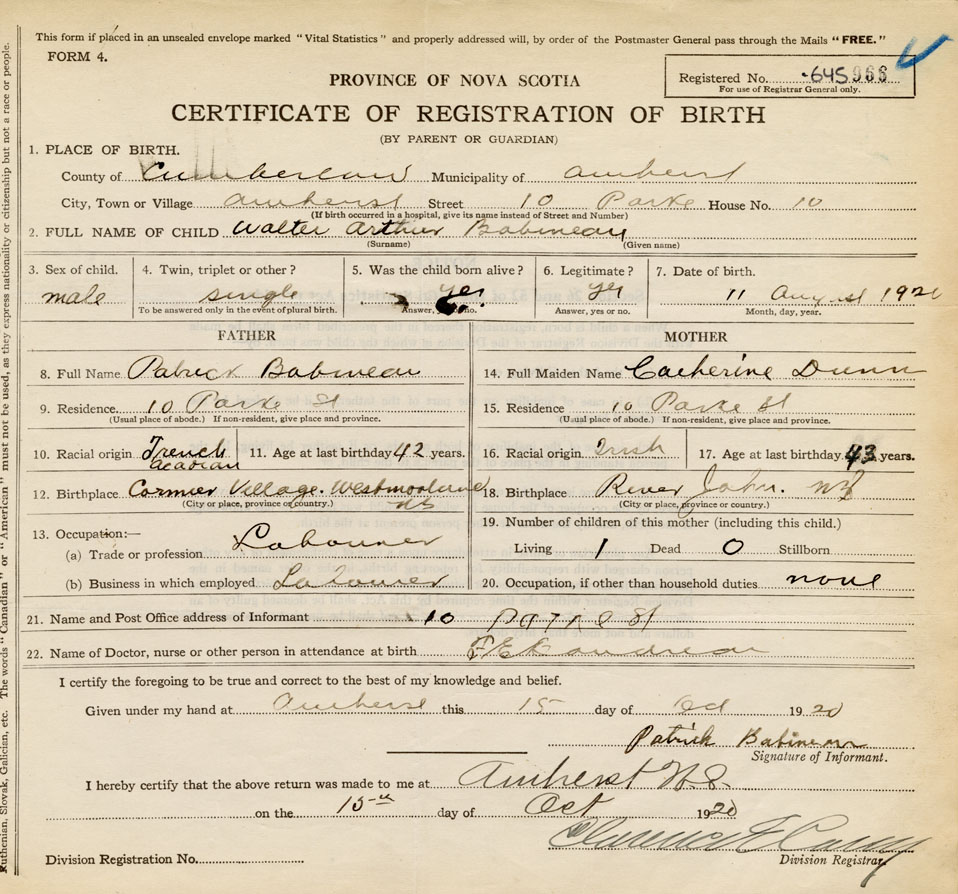 This form if placed in an unsealed envelope marked "Vital Statistics" and properly addressed will, by order of the Postmaster General pass through the Mails "FREE."
FORM 4.
PROVINCE OF NOVA SCOTIA
Registered No. 645 966
For use of Registrar General only.
CERTIFICATE OF REGISTRATION OF BIRTH
(BY PARENT OR GUARDIAN)
1. PLACE OF BIRTH.
County of Cumberland Municipality of Amherst
City, Town or Village Amherst Street 10 Parke House No. 10
(If birth occurred in a hospital, give its name instead of Street and Number)
2. FULL NAME OF CHILD Walter Arthur Babineau
(Surname) (Given name)
3. Sex of child. 4. Twin, triplet or other? 5. Was the child born alive? 6. Legitimate? 7. Date of birth.
male single yes yes 11 August 192
To be answered only in the event of plural birth. Answer, yes or no. Answer, yes or no. Month, day, year.
FATHER MOTHER
8. Full Name Patrick Babineau 14. Full Maiden Name Catherine Dunn
9. Residence 10 Parke St 15. Residence 10 Parke St
(Usual place of abode.) If non-resident, give place and province. (Usual place of abode.) If non-resident, give place and province.
10. Racial origin French Acadian 11. Age at last birthday 42 years. 16. Racial origin Irish 17. Age at last birthday 43 years.
12. Birthplace Cormier Village. Westmorland NB 18. Birthplace River John.
(City or place, province or country.) (City or place, province or country.)
13. Occupation:— 19. Number of children of this mother (including this child.)
(a) Trade or profession Labourer Living 1 Dead 0 Stillborn
(b) Business in which employed Labourer 20. Occupation, if other than household duties none
21. Name and Post Office address of Informant 10 St
22. Name of Doctor, nurse or other person in attendance at birth
I certify the foregoing to be true and correct to the best of my knowledge and belief.
Given under my hand at Amherst this 15 day of Oct 1920
Patrick Babineau
Signature of Informant.
I hereby certify that the above return was made to me at Amherst N.S.
on the 15th day of Oct 1920
Clarence
Division Registration No. Division Registrar.
Ruthenian, Slovak, Galician, etc. The words "Canadian" or "American" must not be used, as they express nationality or citizenship but not a race or people.